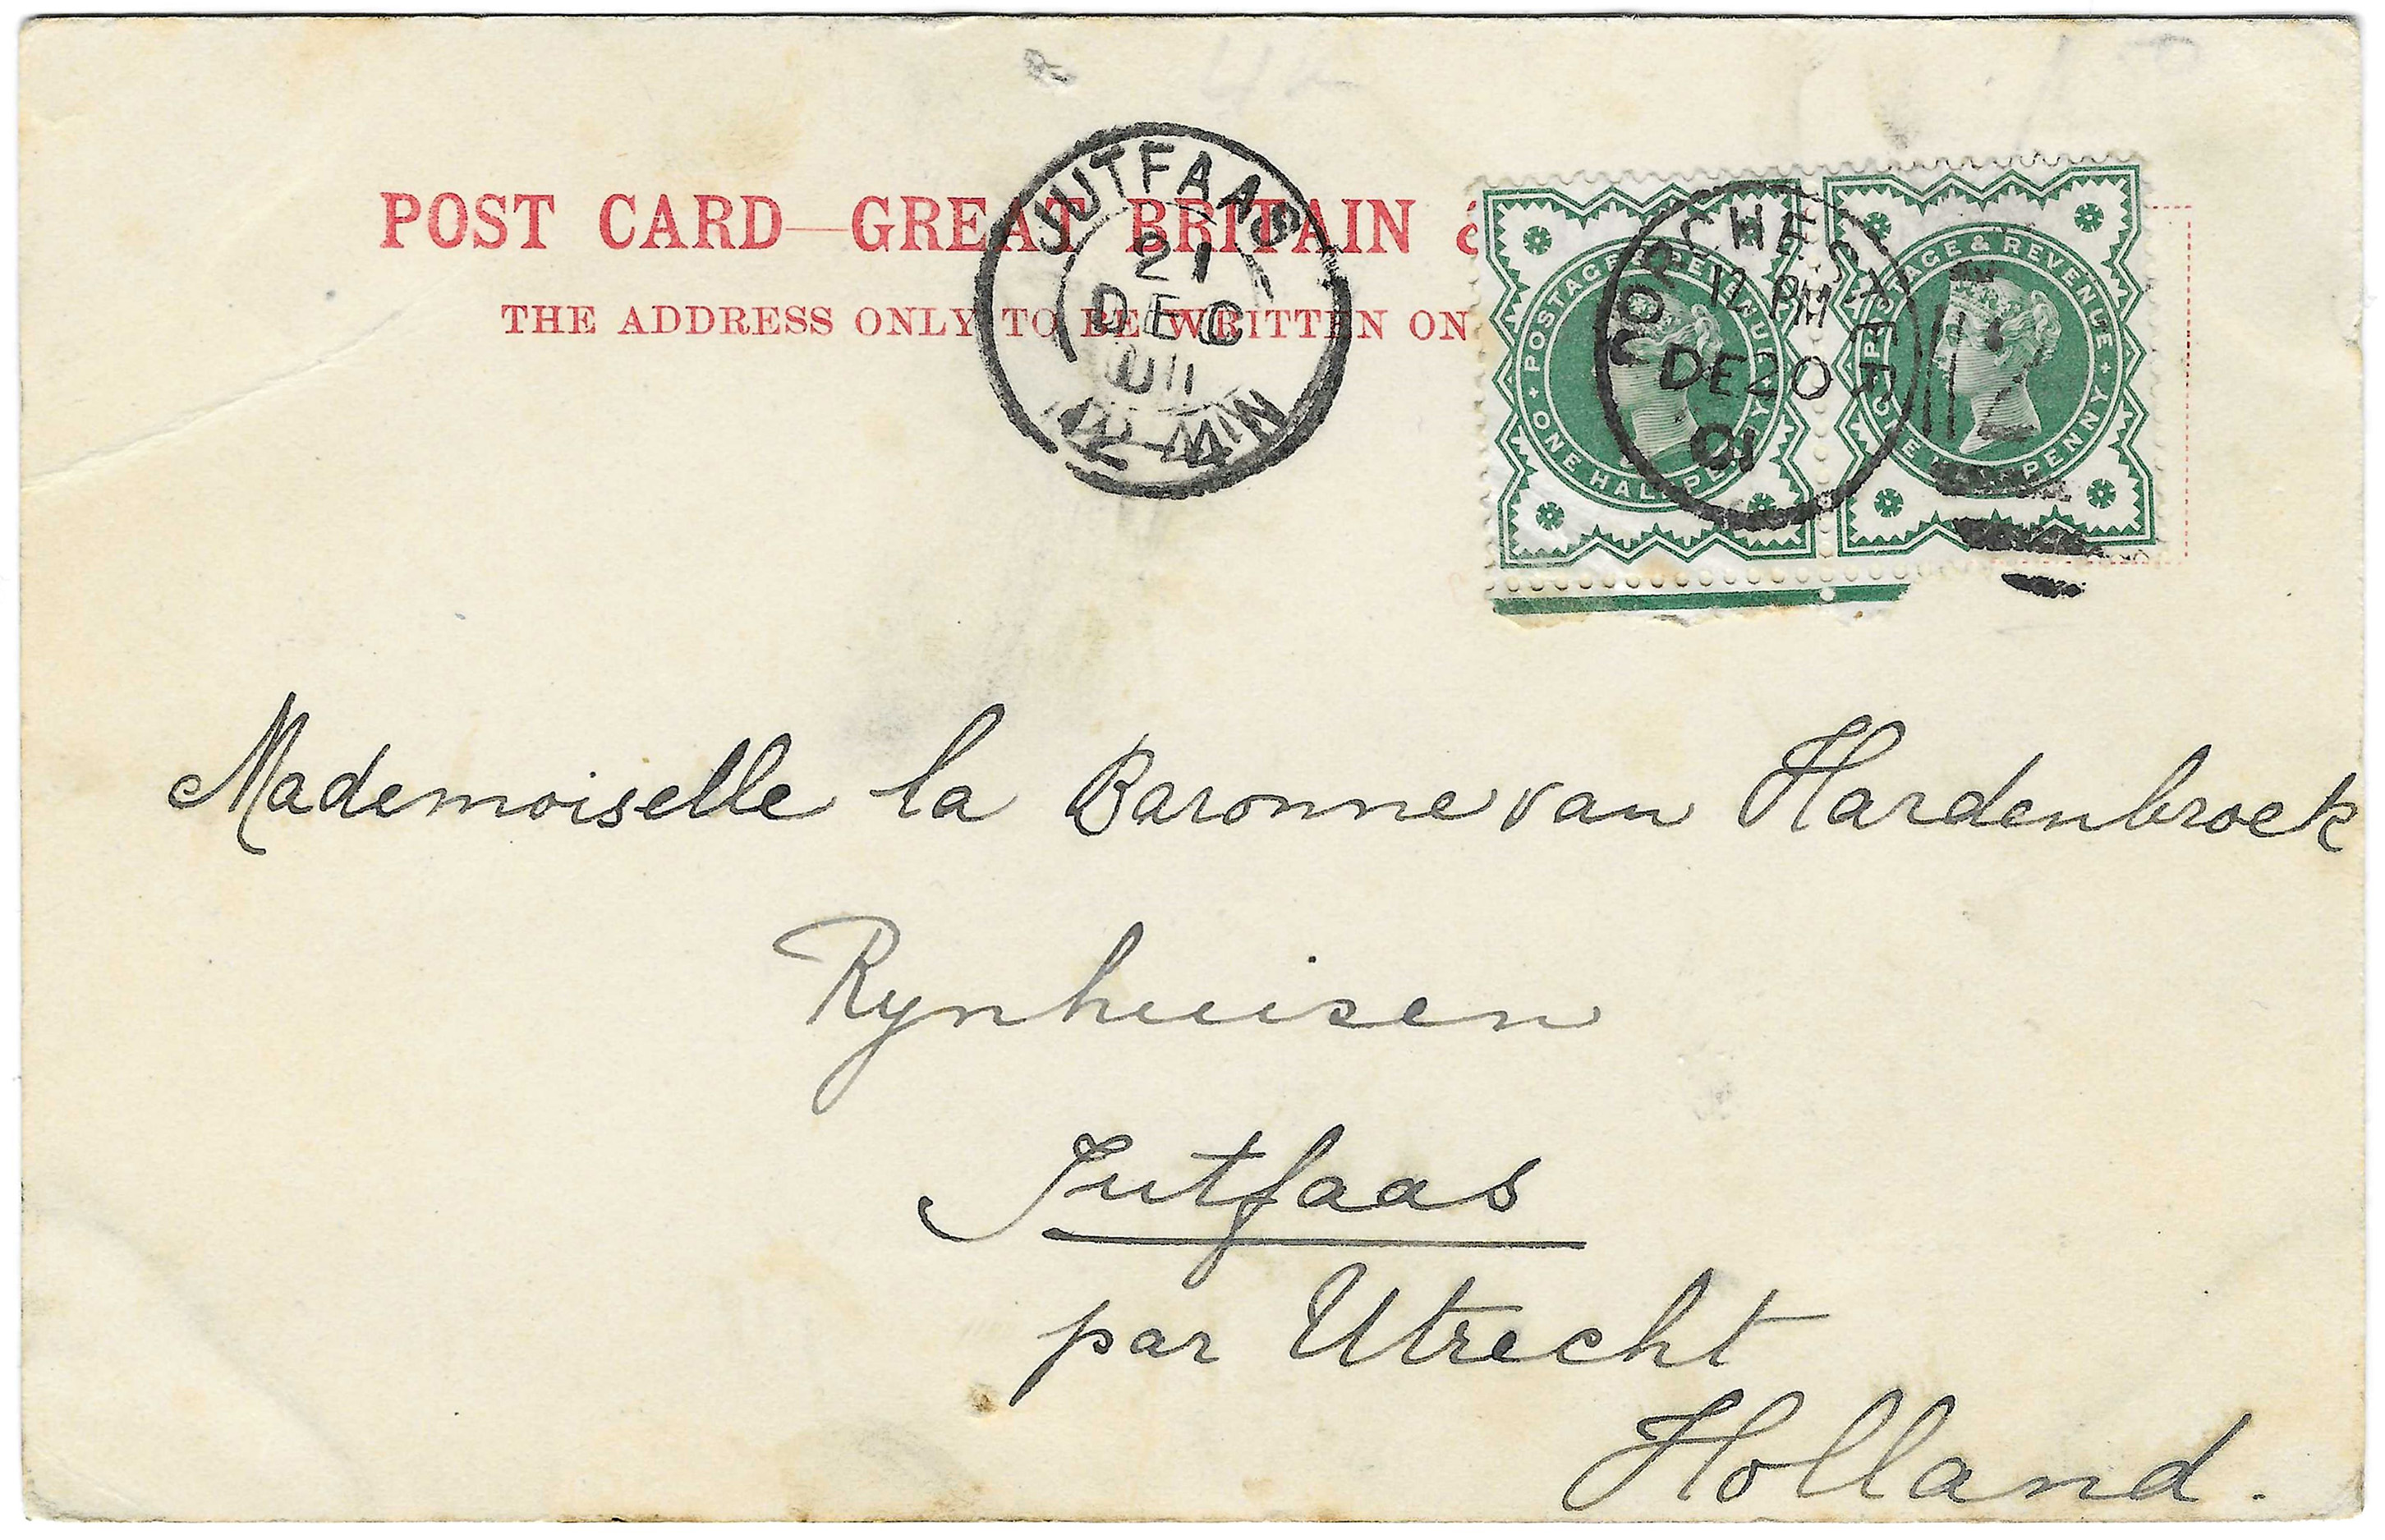 POST CARD—GREAT BRITAIN
THE ADDRESS ONLY TO BE WRITTEN ON
JUTFAAS
21
DEC
01
12-4N
POSTAGE & REVENUE
ONE HALFPENNY
POSTAGE & REVENUE
ONE HALFPENNY
DORCHESTER
DE 20
01
Mademoiselle la Baronne van Hardenbroek
Rynhuisen
Jutfaas
par Utrecht
Holland.